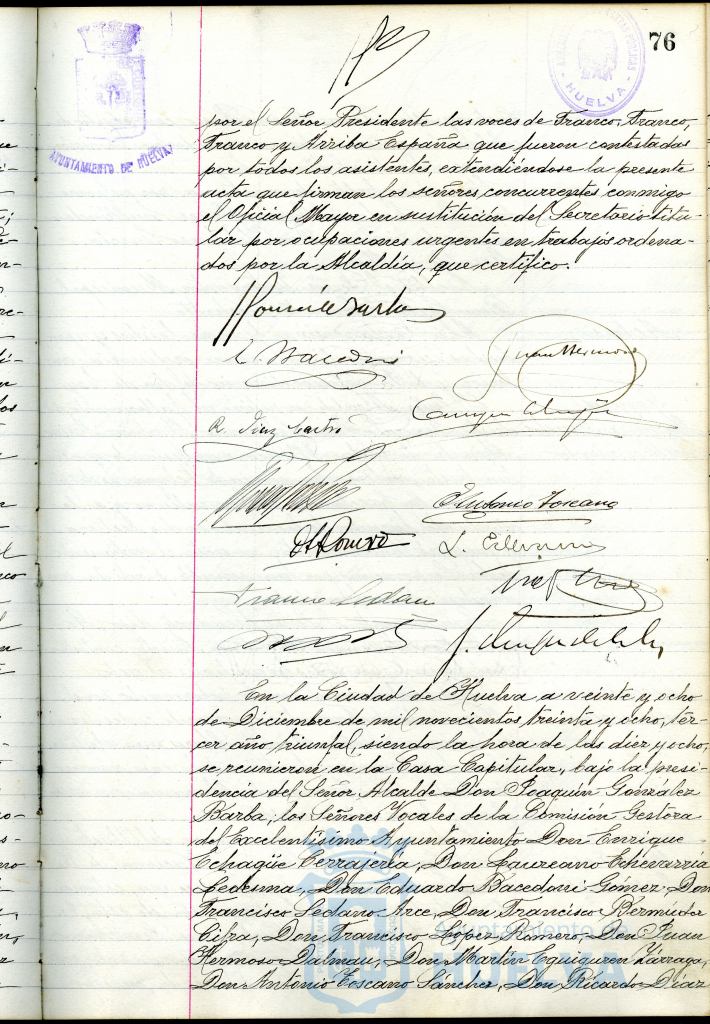 76
AYUNTAMIENTO DE HUELVA
HUELVA
por el Señor Presidente las voces de Franco, Franco,
Franco y Arriba España que fueron contestadas
por todos los asistentes, extendiéndose la presente
acta que firman los señores concurrentes conmigo
el Oficial Mayor en sustitución del Secretario titu-
lar por ocupaciones urgentes en trabajos ordena-
dos por la Alcaldía, que certifico.
R. Diaz Castro
Antonio Toscano
Romero
En la Ciudad de Huelva a veinte y ocho
de Diciembre de mil novecientos treinta y ocho, ter-
cer año triunfal, siendo la hora de las diez y ocho,
se reunieron en la Casa Capitular, bajo la presi-
dencia del Señor Alcalde Don Joaquín González
Barba, los Señores Vocales de la Comisión Gestora
del Excelentísimo Ayuntamiento Don Enrique
Echagüe Cerrajería, Don Laureano Echevarría
Ledesma, Don Eduardo Bacedoni Gómez, Don
Francisco Sedano Arce, Don Francisco Bermúdez
Cilza, Don Francisco López Romero, Don Juan
Hermoso Dalmau, Don Martín Eguiguren Zárraga,
Don Antonio Toscano Sánchez, Don Ricardo Díaz
Ayuntamiento de
HUELVA